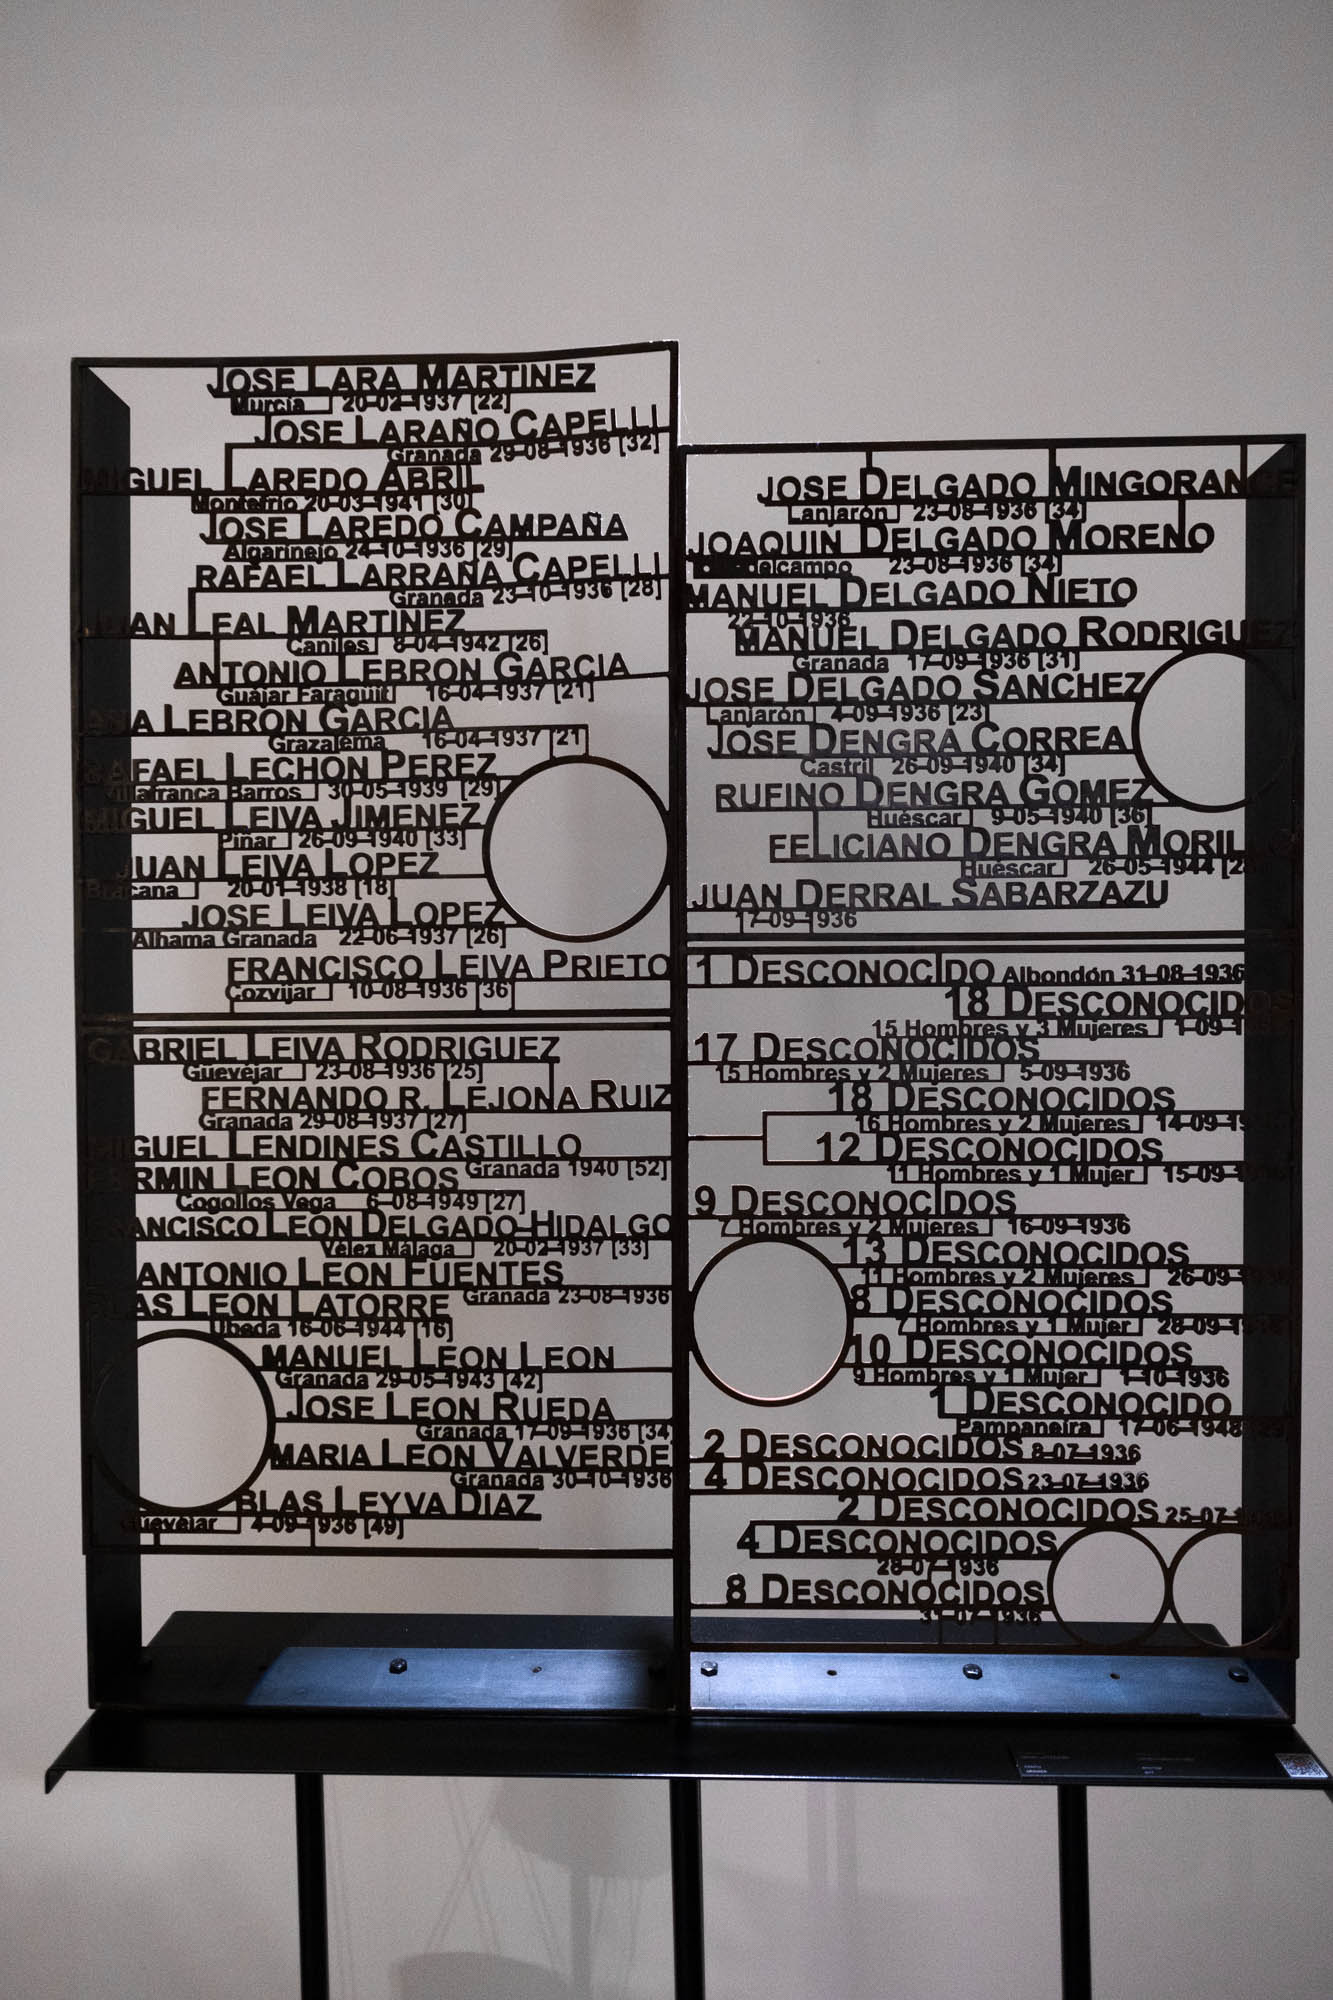 JOSE LARA MARTINEZ
Murcia 20-02-1937 [22]
JOSE LARAÑO CAPELLI
Granada 29-08-1936 [32]
MIGUEL LAREDO ABRIL
Montefrio 20-03-1941 [30]
JOSE LAREDO CAMPAÑA
Algarinejo 24-10-1936 [29]
RAFAEL LARRAÑA CAPELLI
Granada 23-10-1936 [28]
JUAN LEAL MARTINEZ
Caniles 8-04-1942 [26]
ANTONIO LEBRON GARCIA
Guájar Faragüit 16-04-1937 [21]
ANA LEBRON GARCIA
Grazalema 16-04-1937 [21]
RAFAEL LECHON PEREZ
Villafranca Barros 30-05-1939 [29]
MIGUEL LEIVA JIMENEZ
Piñar 26-09-1940 [33]
JUAN LEIVA LOPEZ
Brácana 20-01-1938 [18]
JOSE LEIVA LOPEZ
Alhama Granada 22-06-1937 [26]
FRANCISCO LEIVA PRIETO
Cozvijar 10-08-1936 [36]
GABRIEL LEIVA RODRIGUEZ
Güevéjar 23-08-1936 [25]
FERNANDO R. LEJONA RUIZ
Granada 29-08-1937 [27]
MIGUEL LENDINES CASTILLO
Granada 1940 [52]
FERMIN LEON COBOS
Cogollos Vega 6-08-1949 [27]
FRANCISCO LEON DELGADO-HIDALGO
Vélez Málaga 20-02-1937 [33]
ANTONIO LEON FUENTES
Granada 23-08-1936
BLAS LEON LATORRE
Ubeda 16-06-1944 [16]
MANUEL LEON LEON
Granada 29-05-1943 [42]
JOSE LEON RUEDA
Granada 17-09-1936 [34]
MARIA LEON VALVERDE
Granada 30-10-1936
BLAS LEYVA DIAZ
Güevéjar 4-09-1936 [49]
JOSE DELGADO MINGORANCE
Lanjarón 23-08-1936 [34]
JOAQUIN DELGADO MORENO
23-08-1936 [34]
MANUEL DELGADO NIETO
22-10-1936
MANUEL DELGADO RODRIGUEZ
Granada 17-09-1936 [31]
JOSE DELGADO SANCHEZ
Lanjarón 4-09-1936 [23]
JOSE DENGRA CORREA
Castril 26-09-1940 [34]
RUFINO DENGRA GOMEZ
Huéscar 9-05-1940 [36]
FELICIANO DENGRA
Huéscar 26-05-1944
JUAN DERRAL SABARZAZU
17-09-1936
1 DESCONOCIDO Albondón 31-08-1936
18 DESCONOCIDOS
15 Hombres y 3 Mujeres
17 DESCONOCIDOS
15 Hombres y 2 Mujeres 5-09-1936
18 DESCONOCIDOS
16 Hombres y 2 Mujeres
12 DESCONOCIDOS
11 Hombres y 1 Mujer
9 DESCONOCIDOS
7 Hombres y 2 Mujeres 16-09-1936
13 DESCONOCIDOS
11 Hombres y 2 Mujeres
8 DESCONOCIDOS
7 Hombres y 1 Mujer
10 DESCONOCIDOS
9 Hombres y 1 Mujer 1-10-1936
1 DESCONOCIDO
Pampaneira 17-06-1948
2 DESCONOCIDOS 8-07-1936
4 DESCONOCIDOS 23-07-1936
2 DESCONOCIDOS
4 DESCONOCIDOS
28-07-1936
8 DESCONOCIDOS
31-07-1936